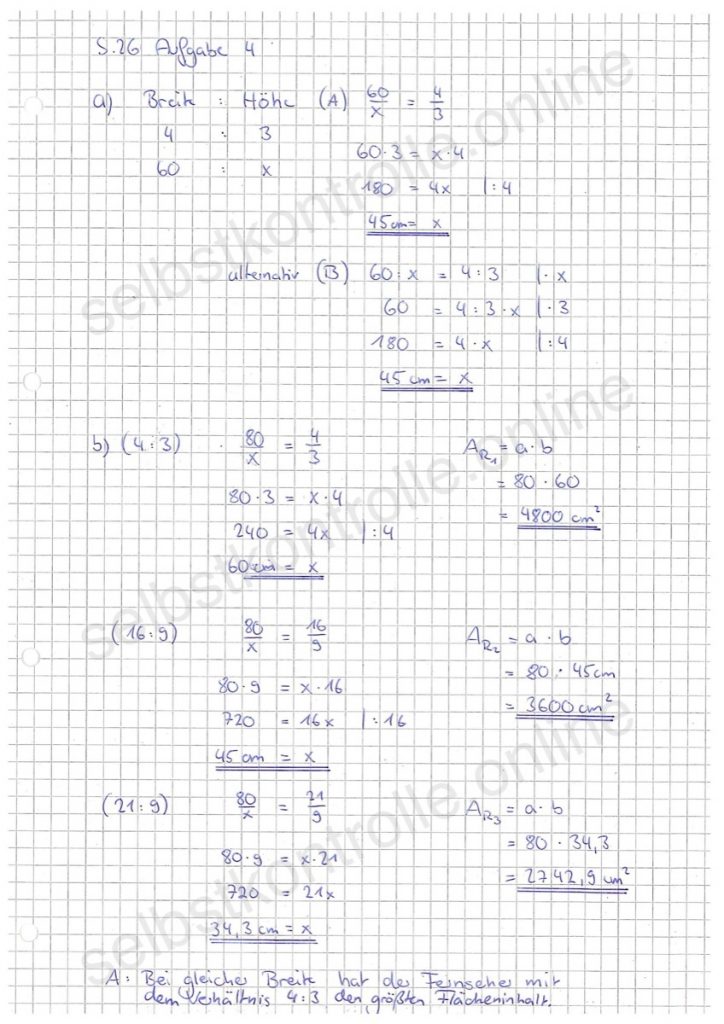 S.26 Aufgabe 4
a) Breite : Höhe (A) 60/x = 4/3
4 : 3
60 : x
60·3 = x·4
180 = 4x |:4
45cm = x
alternativ (B) 60:x = 4:3 |·x
60 = 4:3·x |·3
180 = 4·x |:4
45cm = x
b) (4:3) 80/x = 4/3
80·3 = x·4
240 = 4x |:4
60cm = x
A_R1 = a·b
= 80·60
= 4800 cm²
(16:9) 80/x = 16/9
80·9 = x·16
720 = 16x |:16
45cm = x
A_R2 = a·b
= 80·45cm
= 3600cm²
(21:9) 80/x = 21/9
80·9 = x·21
720 = 21x
34,3cm = x
A_R3 = a·b
= 80·34,3
= 2742,9 cm²
A: Bei gleicher Breite hat der Fernseher mit
dem Verhältnis 4:3 den größten Flächeninhalt.
selbstkontrolle.online
selbstkontrolle.online
selbstkontrolle.online